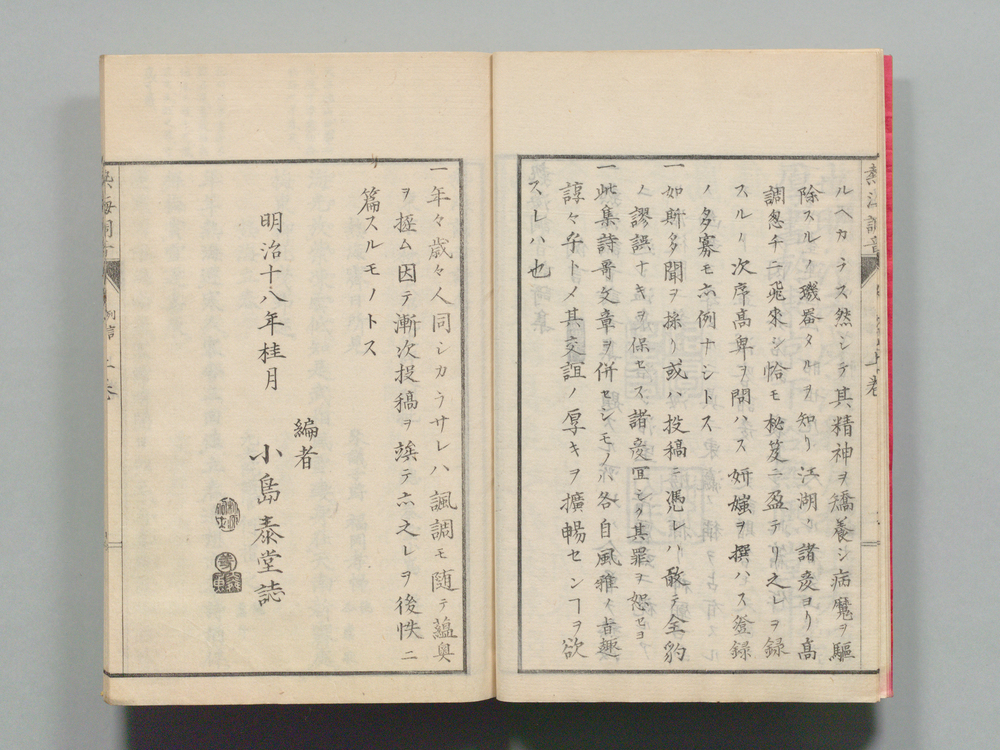 ルヘカラス然シテ其精神ヲ矯養シ病魔ヲ驅
除スルノ璣器タルヲ知リ江湖ノ諸彦ヨリ高
調忽チニ飛來シ恰モ秘笈ニ盈テリ之レヲ録
スルノ次序高卑ヲ問ハス妍媸ヲ撰ハス登録
ノ多寡モ亦例ナシトス
一如斯多聞ヲ採リ或ハ投稿ニ憑レハ敢テ全豹
ノ謬誤ナキヲ保セス諸彦冝シク其罪ヲ恕セヨ
一此集詩哥文章ヲ併セシモノ亦各自風雅ノ旨趣
諄々乎トメ其交誼ノ厚キヲ擴暢センヿヲ欲
スレハ也
一年々歳々人同シカラサレハ諷調モ随テ蘊奥
ヲ極ム因テ漸次投稿ヲ竢テ亦之レヲ後帙ニ
篇スルモノトス
明治十八年桂月
編者
小島泰堂誌